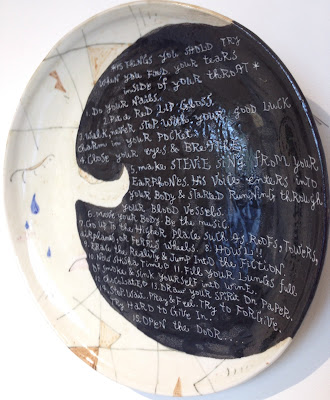 *15 THINGS YOU SHOLD TRY
WHEN YOU FIND YOUR TEARS
INSIDE OF YOUR THROAT *
1. DO YOUR NAILS.
2. PUT A RED LIP GLOSS.
3. WALK, NEVER STOP WITH YOUR GOOD LUCK
CHARM IN YOUR POCKETS
4. CLOSE YOUR EYES & BREATHE.
5. MAKE STEVIE SING FROM YOUR
EARPHONES. HIS VOICE ENTERS INTO
YOUR BODY & STARTED RUNNING THROUGH
YOUR BLOOD VESSELS.
6. MOVE YOUR BODY. BE THE MUSIC.
7. GO UP IN THE HIGHER PLACE SUCH AS ROOFS, TOWERS,
AIRPLANE, OR FERRY WHEELS. 8. HOWL!!
9. ERASE THE REALITY & JUMP INTO THE FICTION.
10. NOW SHISHA TIME 11. FILL YOUR LUNGS FULL
OF SMOKE & SINK YOURSELF INTO WINE,
12. CHOCOLATE 13. DRAW YOUR SPIRIT ON PAPER.
14. STOP. WAIT. PRAY & FEEL. TRY TO FORGIVE.
TRY HARD TO GIVE IN.
15. OPEN THE DOOR....